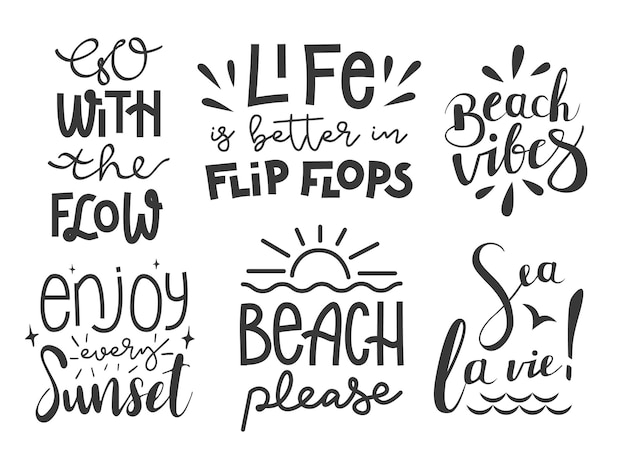 Go
WITH
the
FLOW
LIFE
is better in
FLIP FLOPS
Beach
vibes
enjoy
every
Sunset
BEACH
please
Sea
la vie!